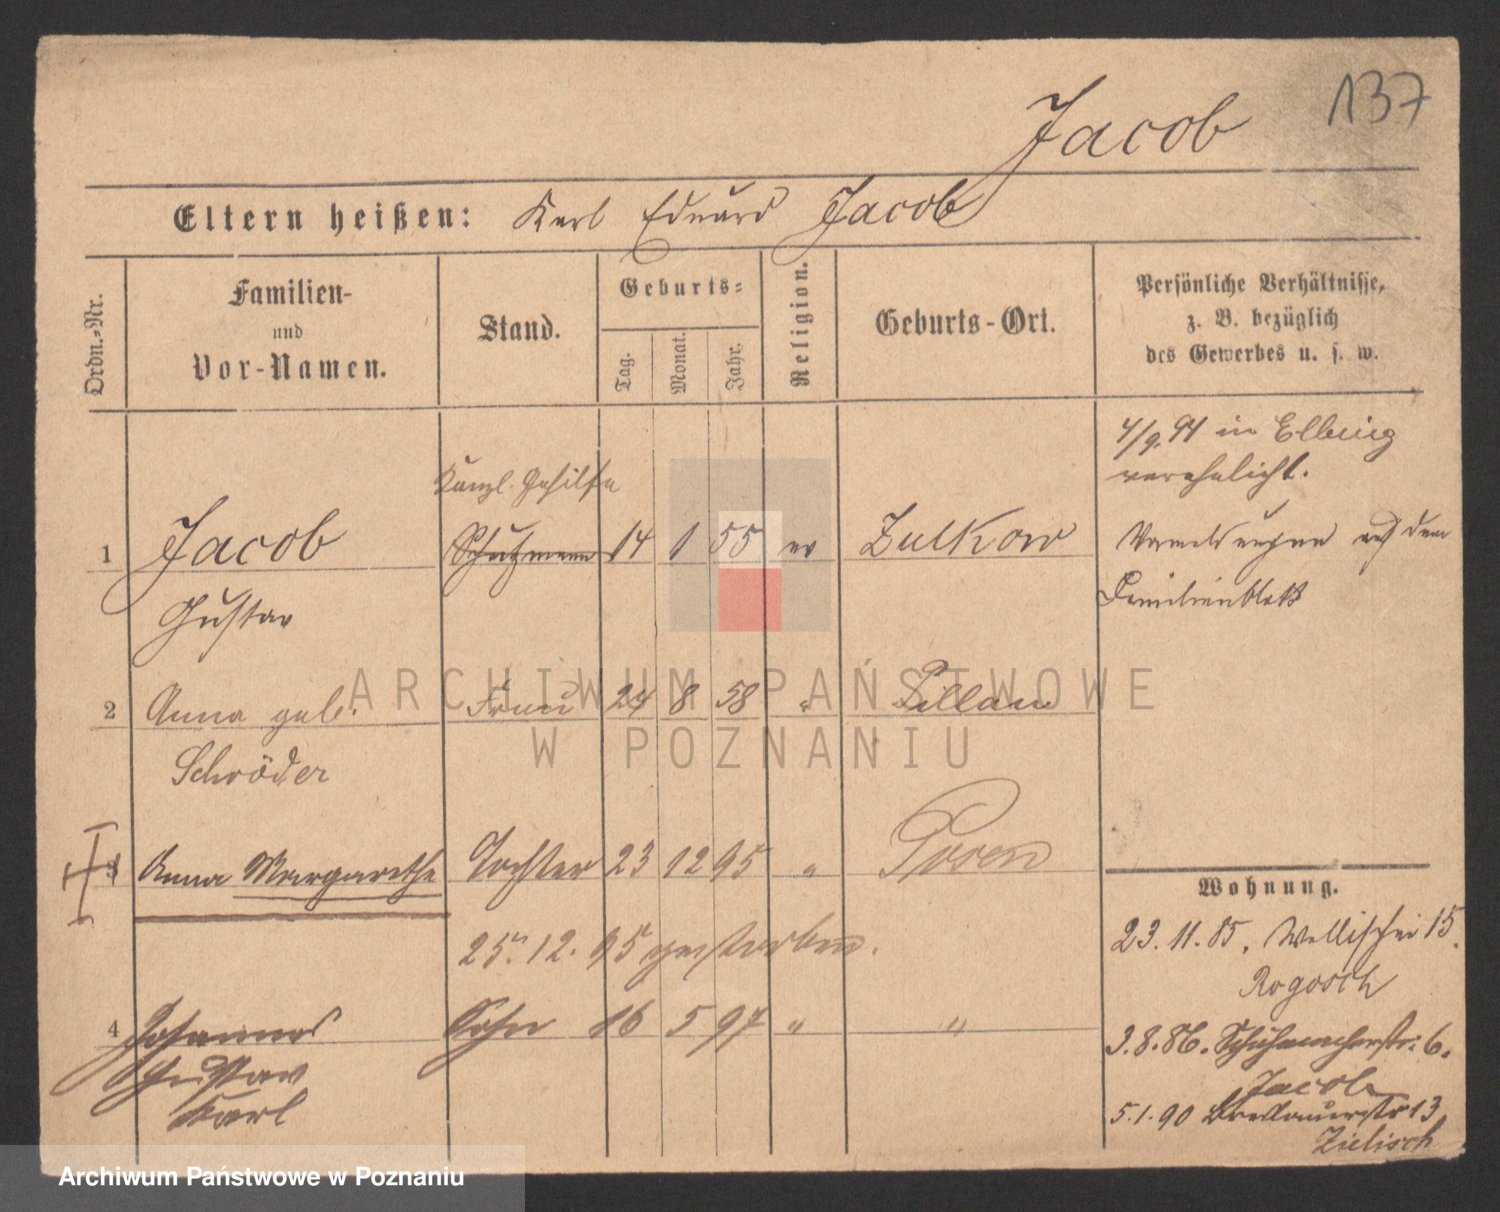 137
Jacob
Eltern heißen: Karl Eduard Jacob
Ordn.-Nr.
Familien-
und
Vor-Namen.
Stand.
Geburts-
Tag.
Monat.
Jahr.
Religion.
Geburts-Ort.
Persönliche Verhältnisse,
z. B. bezüglich
des Gewerbes u. s. w.
4/9. 94 in Elbing
verehelicht.
Kanzl. Gehilfe
1 Jacob Schutzmann 14 1 55 ev Zulkow
Gustav
auf dem
Familienblatt
2 Anna geb. Frau 24 8 58 " Pillau
Schröder
3 Anna Margarethe Tochter 23 12 95 " Posen
25. 12. 95 gestorben.
4 Johannes Sohn 16 5 97 " "
Gustav
Karl
Wohnung.
23. 11. 85. Wallischei 15.
Rogosch
3. 8. 86. Schuhmacherstr. 6.
Jacob
5. 1. 90 Breslauerstr 13
Zielisch
ARCHIWUM PAŃSTWOWE
W POZNANIU
Archiwum Państwowe w Poznaniu